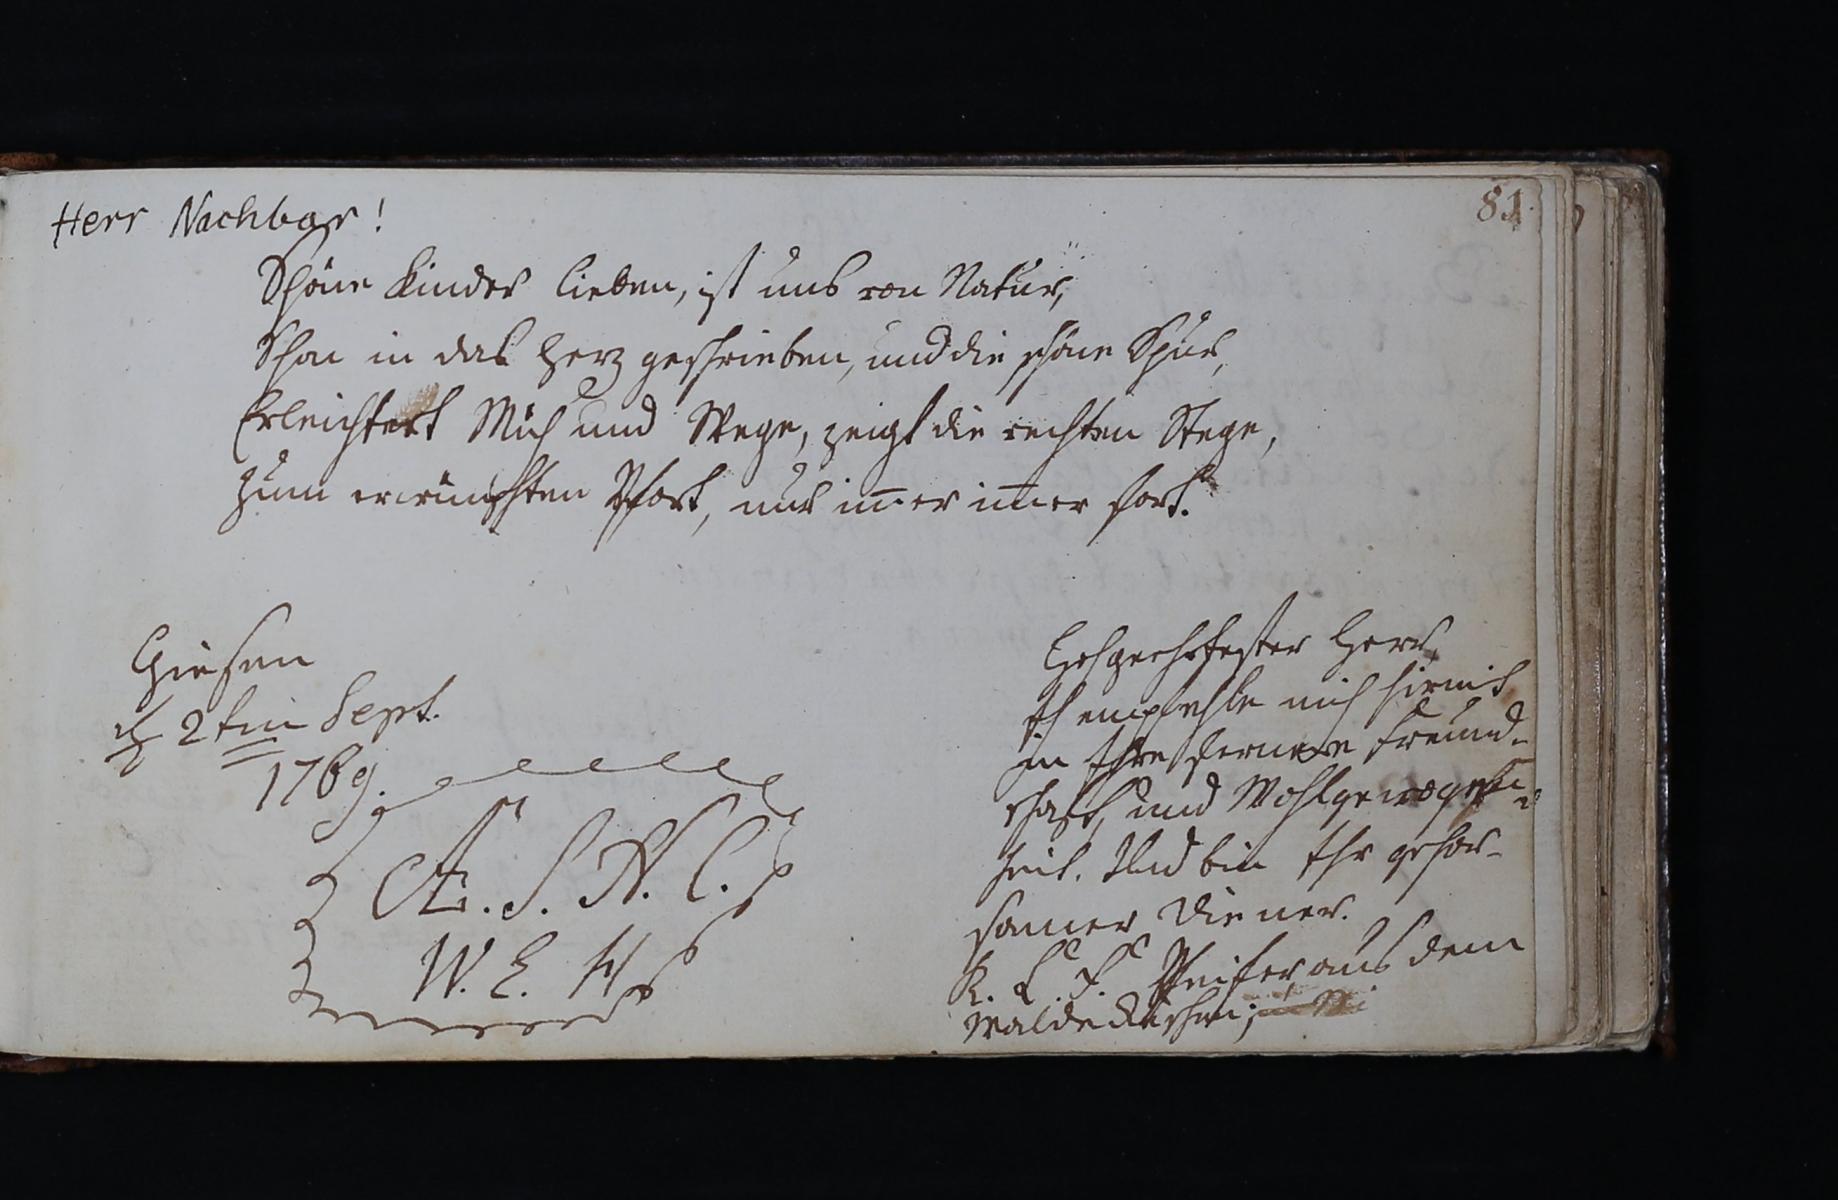 81.
Herr Nachbar!
Schöne Kinder lieben, ist uns von Natur,
Schon in das Herz geschrieben, und die schöne Spur,
Erleichtert Müh und Wege, zeigt die rechten Stege,
Zum erwünschten Port, nur im̅er im̅er fort.
Giesen
d. 2ten Sept.
1769.
S. N. C.
W. E. H
Hochgeehrtester Herr,
Ich empfehle mich hiermit
in Ihre fernere Freund-
schaft, und Wohlgewogen-
heit. Und bin Ihr gehor-
samer Diener.
K. L. F. Pfeifer, aus dem
Waldeckischen;